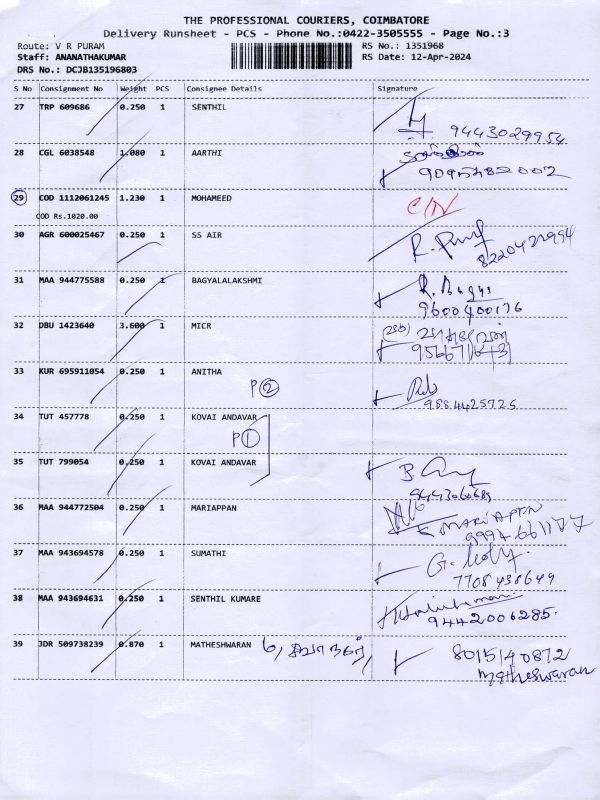 THE PROFESSIONAL COURIERS, COIMBATORE
Delivery Runsheet - PCS - Phone No.:0422-3505555 - Page No.:3
Route: V R PURAM
RS No.: 1351968
Staff: ANANATHAKUMAR
RS Date: 12-Apr-2024
DRS No.: DCJB135196803
S No Consignment No Weight PCS Consignee Details Signature
27 TRP 609686 0.250 1 SENTHIL
9443029954
28 CGL 6038548 1.080 1 AARTHI
9095482002
29 COD 1112061245 1.230 1 MOHAMEED
COD Rs.1020.00
30 AGR 600025467 0.250 1 SS AIR
31 MAA 944775588 0.250 1 BAGYALALAKSHMI
9600400176
32 DBU 1423640 3.600 1 MICR
33 KUR 695911054 0.250 1 ANITHA
P ②
9884425725
34 TUT 457778 0.250 1 KOVAI ANDAVAR
P ①
35 TUT 799054 0.250 1 KOVAI ANDAVAR
36 MAA 944772504 0.250 1 MARIAPPAN
MARIAPPN
37 MAA 943694578 0.250 1 SUMATHI
7708438649
38 MAA 943694631 0.250 1 SENTHIL KUMARE
9442006285.
39 JDR 509738239 0.870 1 MATHESHWARAN
8015140872
Matheswaran